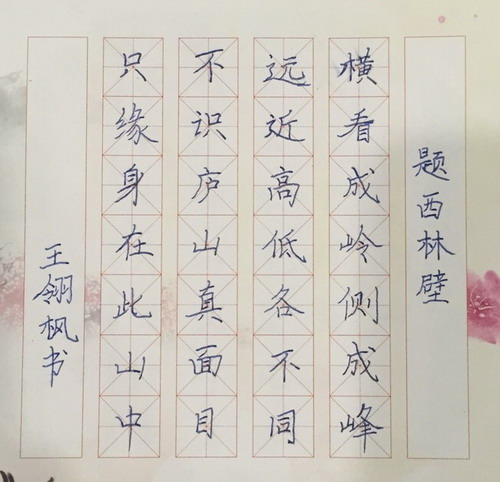 题西林壁
横看成岭侧成峰
远近高低各不同
不识庐山真面目
只缘身在此山中
王翎枫书